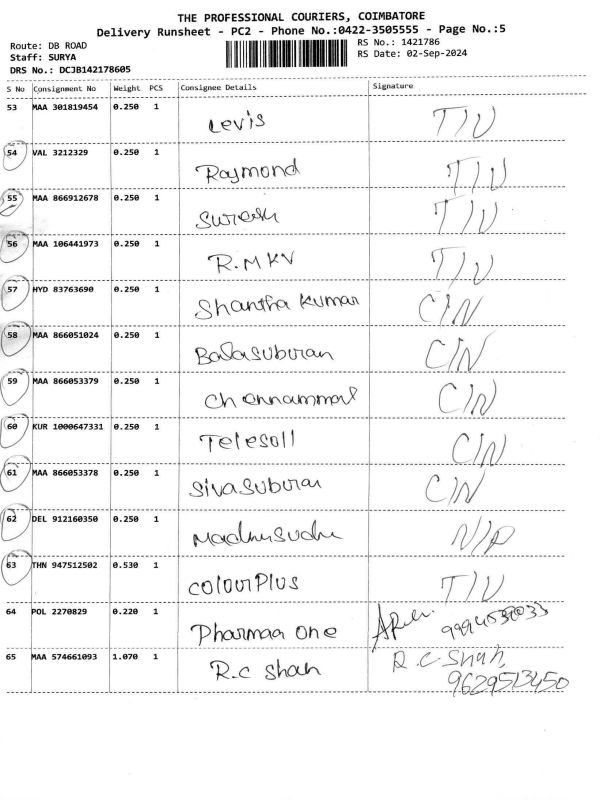 THE PROFESSIONAL COURIERS, COIMBATORE
Delivery Runsheet - PC2 - Phone No.:0422-3505555 - Page No.:5
Route: DB ROAD RS No.: 1421786
Staff: SURYA RS Date: 02-Sep-2024
DRS No.: DCJB142178605
S No Consignment No Weight PCS Consignee Details Signature
53 MAA 301819454 0.250 1 Levis T/U
54 VAL 3212329 0.250 1 Raymond T/U
55 MAA 866912678 0.250 1 Suresh T/U
56 MAA 106441973 0.250 1 R.MKV T/U
57 HYD 83763690 0.250 1 Shantha Kumar C/N
58 MAA 866051024 0.250 1 Balasuburan C/N
59 MAA 866053379 0.250 1 Chennammal C/N
60 KUR 1000647331 0.250 1 Telesoll C/N
61 MAA 866053378 0.250 1 Sivasuburan C/N
62 DEL 912160350 0.250 1 Madhusudhu N/P
63 THN 947512502 0.530 1 ColourPlus T/U
64 POL 2270829 0.220 1 Pharmaa one
65 MAA 574661093 1.070 1 R.c Shah R.C Shah
9629513450